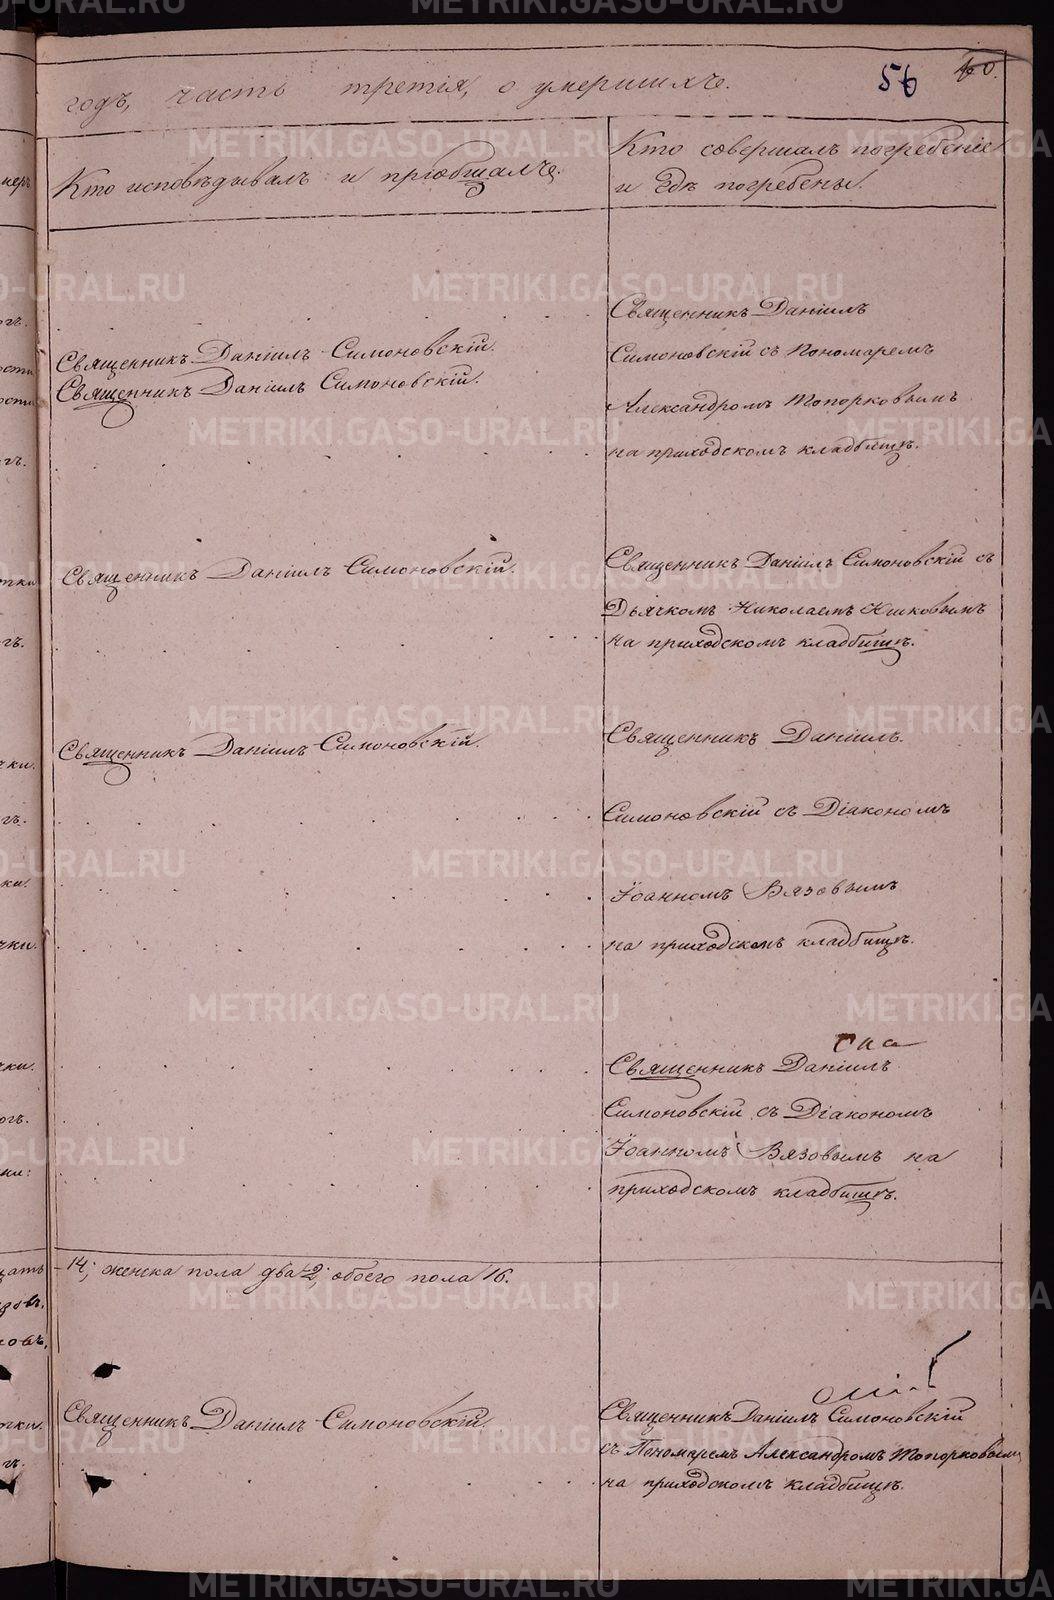 56
60.
годъ, часть третія, о умершихъ.
Кто исповѣдывалъ и пріобщалъ.
Кто совершалъ погребеніе
и гдѣ погребены.
Священникъ Даніилъ Симоновскій.
Священникъ Даніилъ Симоновскій.
Священникъ Даніилъ
Симоновскій съ Пономаремъ
Александромъ Топорковымъ
на приходскомъ кладбищѣ.
Священникъ Даніилъ Симоновскій.
Священникъ Даніилъ Симоновскій съ
Дьячкомъ Николаемъ
на приходскомъ кладбищѣ.
Священникъ Даніилъ Симоновскій.
Священникъ Даніилъ
Симоновскій съ Діакономъ
Іоанномъ Вязовымъ
на приходскомъ кладбищѣ.
Священникъ Даніилъ
Симоновскій съ Діакономъ
Іоанномъ Вязовымъ на
приходскомъ кладбищѣ.
14; женска пола два 2; обоего пола 16.
Священникъ Даніилъ Симоновскій.
Священникъ Даніилъ Симоновскій
съ Пономаремъ Александромъ Топорковымъ
на приходскомъ кладбищѣ.
METRIKI.GASO-URAL.RU